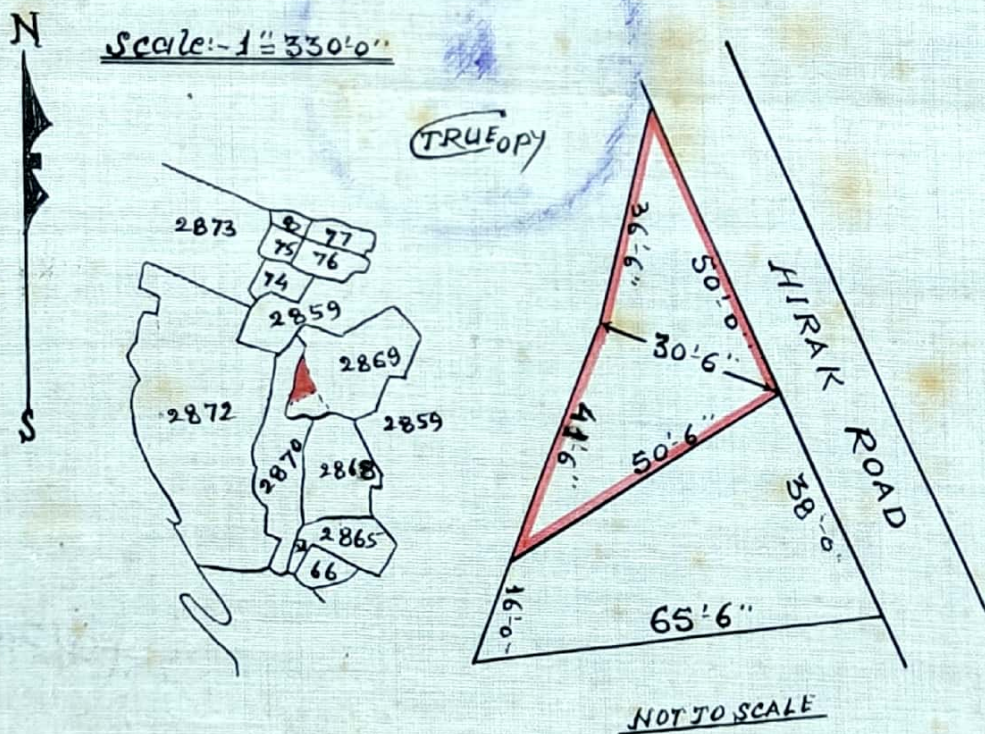 N
Scale:- 1" = 330'-0"
TRUE COPY
S
2873
77
75
76
74
2859
2869
2872
2859
2870
2868
2865
66
36'-6"
50'-0"
30'-6"
50'-6"
38'-0"
16'-0"
65'-6"
HIRAK ROAD
NOT TO SCALE